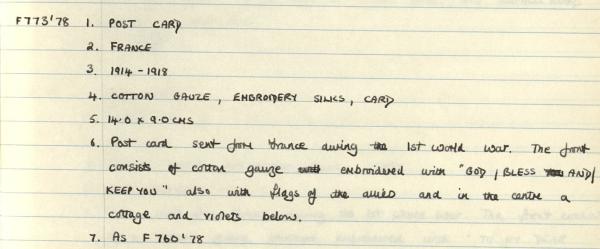 F773'78 1. POST CARD
2. FRANCE
3. 1914-1918
4. COTTON GAUZE, EMBROIDERY SILKS, CARD
5. 14.0 x 9.0 CMS
6. Post card sent from France during the 1st world war. The front
consists of cotton gauze embroidered with "GOD / BLESS AND/
KEEP YOU" also with flags of the allies and in the centre a
cottage and violets below.
7. As F760'78